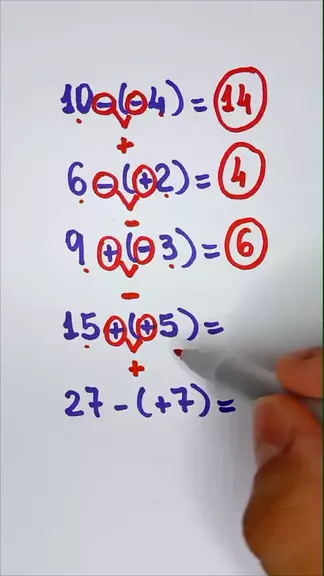 10-(-4)=14
+
6-(+2)=4
-
9+(-3)=6
-
15+(+5)=
+
27-(+7)=